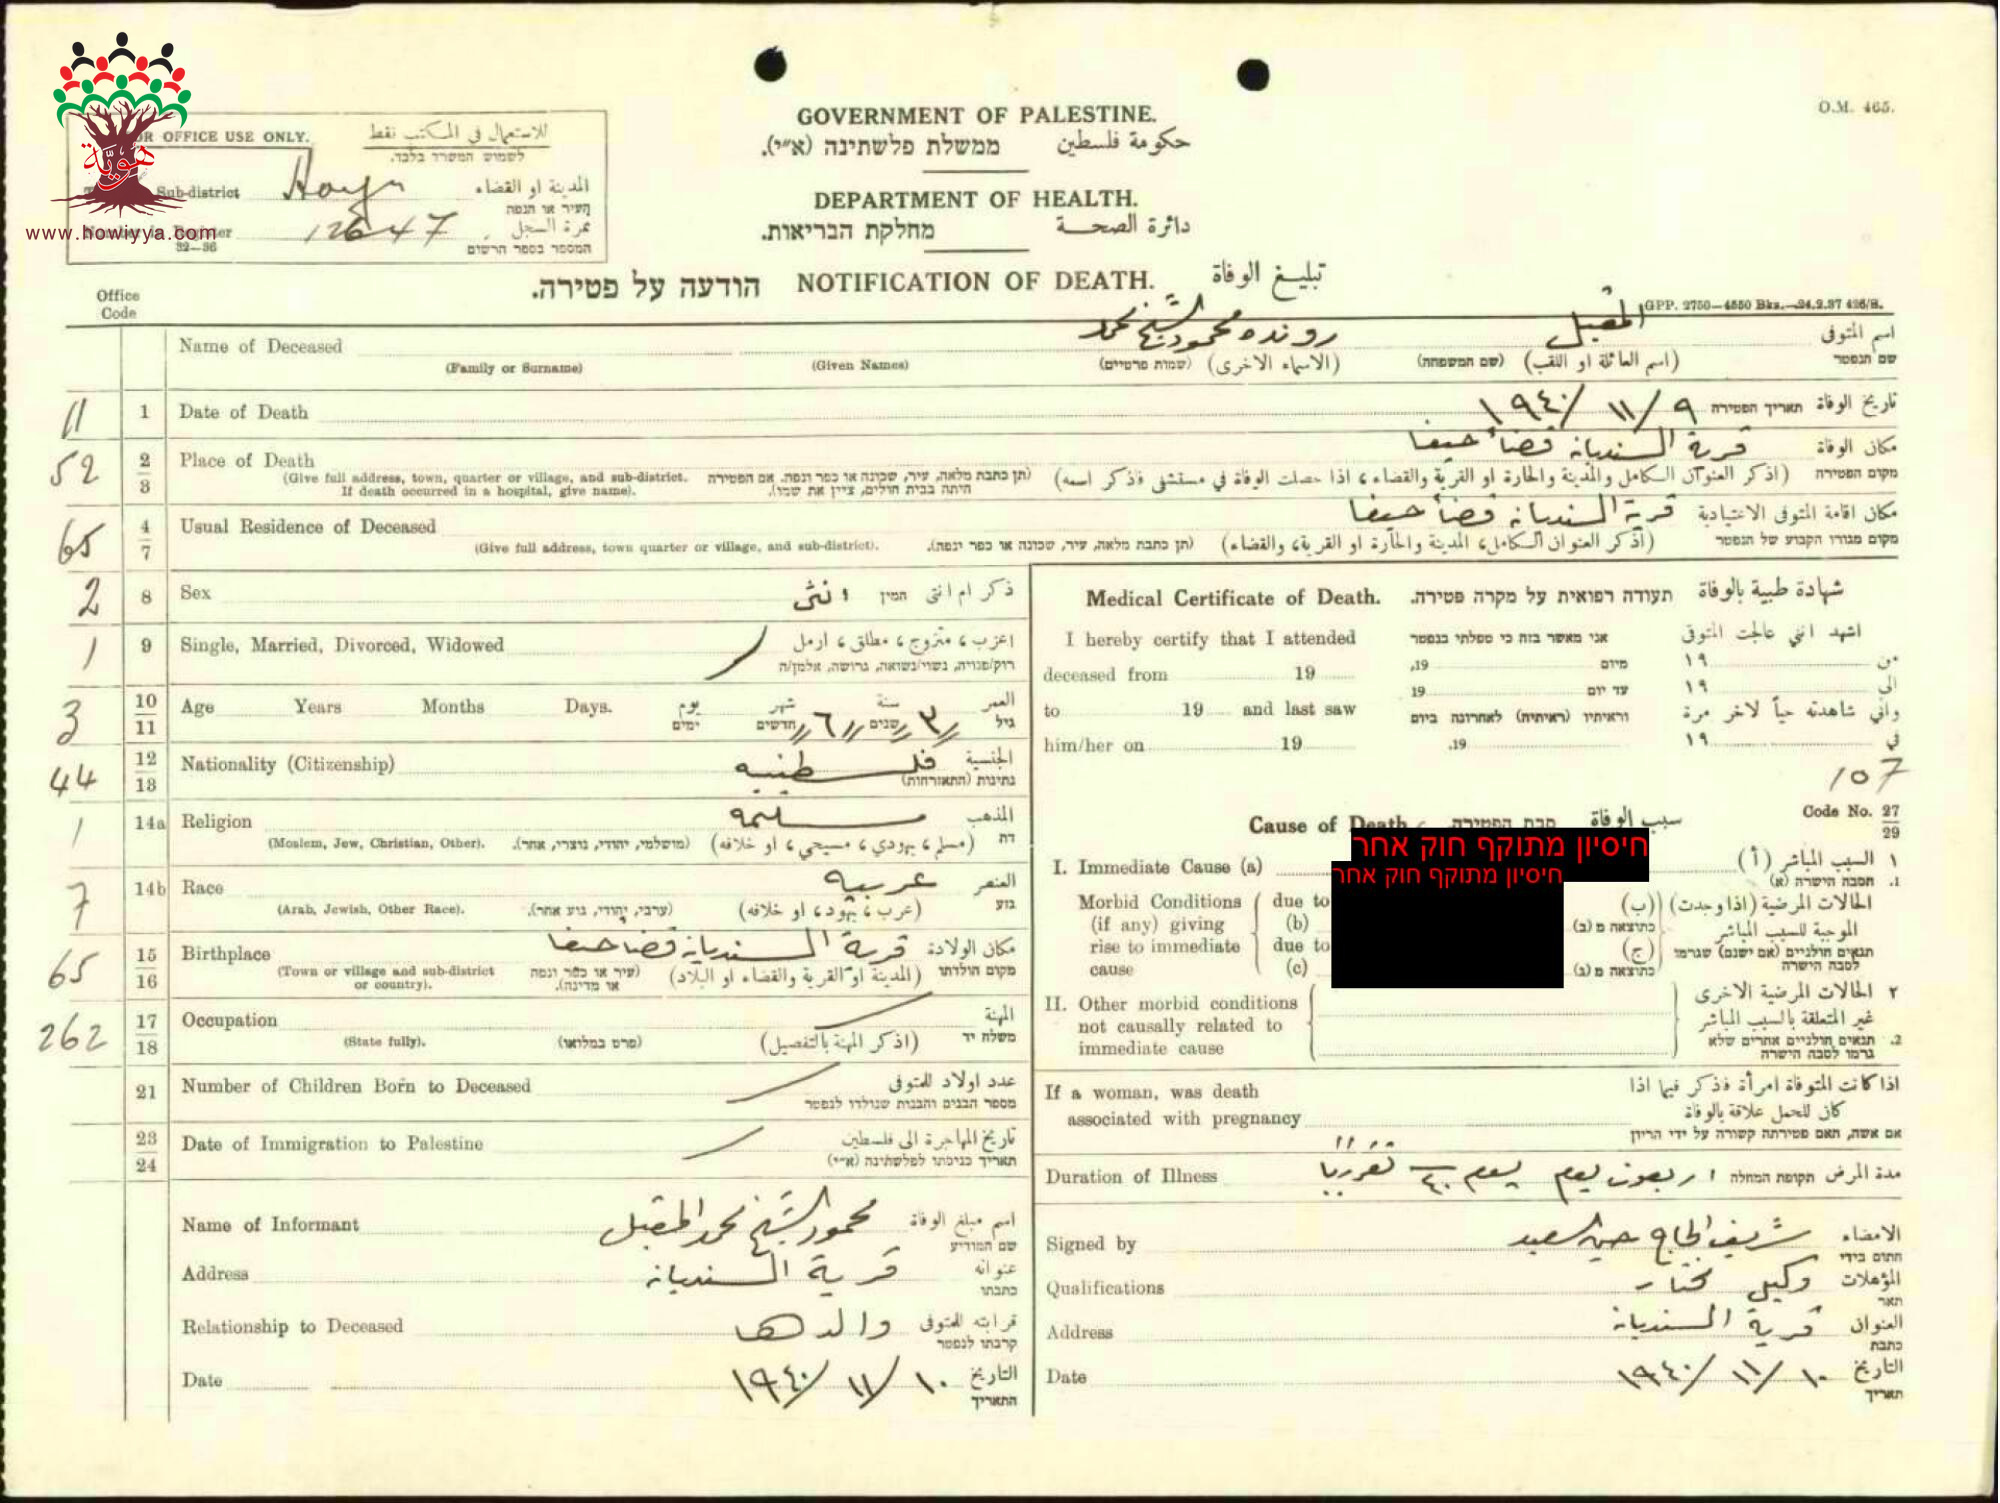 O.M. 465.
GOVERNMENT OF PALESTINE.
ממשלת פלשתינה (א״י). حكومة فلسطين
DEPARTMENT OF HEALTH.
מחלקת הבריאות. دائرة الصحة
FOR OFFICE USE ONLY. للاستعمال في المكتب فقط
לשמוש המשרד בלבד.
Sub-district المدينة او القضاء
העיר או הנפה
نمرة السجل
המספר בספר הרשום
32—36
هوية
www.howiyya.com
הודעה על פטירה. NOTIFICATION OF DEATH. تبليغ الوفاة
GPP. 2750—4550 Bks.—24.2.37 426/H.
Office
Code
Name of Deceased رونده محمود الشيخ محمد المقبل اسم المتوفى
(Family or Surname) (Given Names) (שמות פרטיים) (الاسماء الاخرى) (שם המשפחה) (اسم العائلة او اللقب) שם הנפטר
11 1 Date of Death ٩/١١/١٩٤٠ תאריך הפטירה تاريخ الوفاة
52 2 3 Place of Death قرية السنديانة قضاء حيفا مكان الوفاة
(Give full address, town, quarter or village, and sub-district. If death occurred in a hospital, give name). (תן כתבת מלאה, עיר, שכונה או כפר ונפה. אם הפטירה היתה בבית חולים, ציין את שמו). (اذكر العنوان الكامل والمدينة والحارة او القرية والقضاء، اذا حصلت الوفاة في مستشفى فاذكر اسمه) מקום הפטירה
65 4 7 Usual Residence of Deceased قرية السنديانة قضاء حيفا مكان اقامة المتوفى الاعتيادية
(Give full address, town quarter or village, and sub-district). (תן כתבת מלאה, עיר, שכונה או כפר ונפה). (اذكر العنوان الكامل، المدينة والحارة او القرية، والقضاء) מקום מגורו הקבוע של הנפטר
2 8 Sex انثى המין ذكر ام انثى
1 9 Single, Married, Divorced, Widowed اعزب، متزوج، مطلق، ارمل
רוק/פנויה, נשוי/נשואה, גרושה, אלמן/ה
3 10 11 Age Years Months Days. يوم شهر سنة العمر
ימים חדשים ٦ שנים ٣ גיל
44 12 13 Nationality (Citizenship) فلسطينيه الجنسية
נתינות (התאזרחות)
1 14a Religion مسلمه المذهب
(Moslem, Jew, Christian, Other). (מושלמי, יהודי, נוצרי, אחר). (مسلم، يهودي، مسيحي، او خلافه) דת
7 14b Race عربيه العنصر
(Arab, Jewish, Other Race). (ערבי, יהודי, גזע אחר). (عرب، يهود، او خلافه) גזע
65 15 16 Birthplace قرية السنديانة قضا حيفا مكان الولادة
(Town or village and sub-district or country). (עיר או כפר ונפה או מדינה). (المدينة او القرية والقضاء او البلاد) מקום הולדתו
262 17 18 Occupation المهنة
(State fully). (פרט במלואו) (اذكر المهنة بالتفصيل) משלח יד
21 Number of Children Born to Deceased عدد اولاد للمتوفى
מספר הבנים והבנות שנולדו לנפטר
23 24 Date of Immigration to Palestine تاريخ المهاجرة الى فلسطين
תאריך כניסתו לפלשתינה (א״י)
Name of Informant محمود الشيخ محمد المقبل اسم مبلغ الوفاة
שם המודיע
Address قرية السنديانة عنوانه
כתבתו
Relationship to Deceased والدها قرابته للمتوفى
קרבתו לנפטר
Date ١٠/١١/١٩٤٠ التاريخ
התאריך
Medical Certificate of Death. תעודה רפואית על מקרה פטירה. شهادة طبية بالوفاة
I hereby certify that I attended אני מאשר בזה כי טפלתי בנפטר اشهد انني عالجت المتوفى
deceased from 19 מיום 19, من ١٩
to 19 and last saw עד יום 19 الى ١٩
וראיתיו (ראיתיה) לאחרונה ביום واني شاهدته حياً لاخر مرة
him/her on 19 19. في ١٩
107
Code No. 27 29
Cause of Death סבת הפטירה سبب الوفاة
חיסיון מתוקף חוק אחר
חיסיון מתוקף חוק אחר
I. Immediate Cause (a) ١ السبب المباشر (أ)
1. הסבה הישרה (א)
Morbid Conditions (if any) giving rise to immediate cause due to (b) due to (c)
الحالات المرضية (اذا وجدت) (ب)
الموجبة للسبب المباشر כתוצאה מ (ב)
תנאים חולניים (אם ישנם) שגרמו לסבה הישרה (ج)
כתוצאה מ (ג)
II. Other morbid conditions not causally related to immediate cause
٢ الحالات المرضية الاخرى
غير المتعلقة بالسبب المباشر
2. תנאים חולניים אחרים שלא גרמו לסבה הישרה
If a woman, was death associated with pregnancy
اذا كانت المتوفاة امرأة فذكر فيما اذا
كان للحمل علاقة بالوفاة
אם אשה, האם פטירתה קשורה על ידי הריון
Duration of Illness اربعون يوم ٤٠ يوم تقريبا תקופת המחלה مدة المرض
Signed by شريف الحاج حسن السعيد الامضاء
חתום בידי
Qualifications وكيل مختار المؤهلات
תאר
Address قرية السنديانة العنوان
כתבת
Date ١٠/١١/١٩٤٠ التاريخ
תאריך